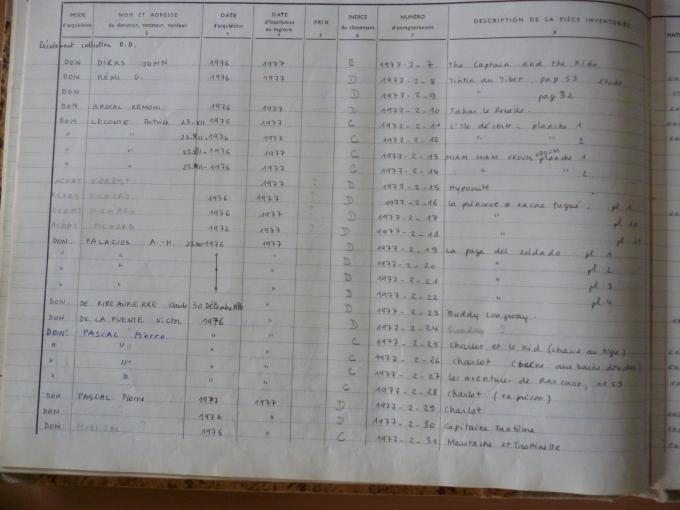 MODE d'acquisition NOM ET ADRESSE du donateur, testateur, vendeur DATE d'acquisition DATE d'inscription au registre PRIX INDICE du classement NUMÉRO d'enregistrement DESCRIPTION DE LA PIÈCE INVENTORIÉE
collection B.D.
DON DIRKS JOHN 1976 1977 E 1977-2-7 The Captain and the Kids
DON RÉMI G. 1976 1977 D 1977-2-8 Tintin au Tibet, pag 53
DON D 1977-2-9 " pag 32
DON 1976 1977 D 1977-2-10
DON LECONTE Patrice 23-XII-1976 1977 C 1977-2-11 L'île déserte. planche 1
" " -1976 1977 C 1977-2-12 " 2
" " -1976 1977 C 1977-2-13 MIAM MIAM VROUM VROUM planche 1
" " -1976 1977 C 1977-2-14 " " 2.
ACHAT FOREST 1977 ? D 1977-2-15 Hypocrite
ACHAT PICHARD 1976 1977 ? D 1977-2-16 La pl. 1
ACHAT PICHARD 1976 1977 ? D 1977-2-17 "
ACHAT PICHARD 1976 1977 ? D 1977-2-18 "
DON PALACIOS A.-H. 1976 1977 D 1977-2-19 La paga del soldado pl. 1
" " " D 1977-2-20 " pl 2
" " " D 1977-2-21 " pl 3
" " " D 1977-2-22 " pl 4
DON DE RIBEAUPIERRE Claude 30 Décembre 1976 " D 1977-2-23 Buddy Longway.
DON DE LA FUENTE Victor 1976 " D 1977-2-24 Sunday ?
DON PASCAL Pierre " " C 1977-2-25 Charlot et le Kid
" " " " C 1977-2-26 Charlot
" " " " C 1977-2-27 Les aventures de n° 59
C 1977-2-28 Charlot (en prison)
DON PASCAL Pierre 1977 1977 D 1977-2-29 Charlot
DON 1976 " D 1977-2-30 Capitaine Fantôme
DON MARIJAC ? 1976 " C 1977-2-31 Moustache et Trottinette